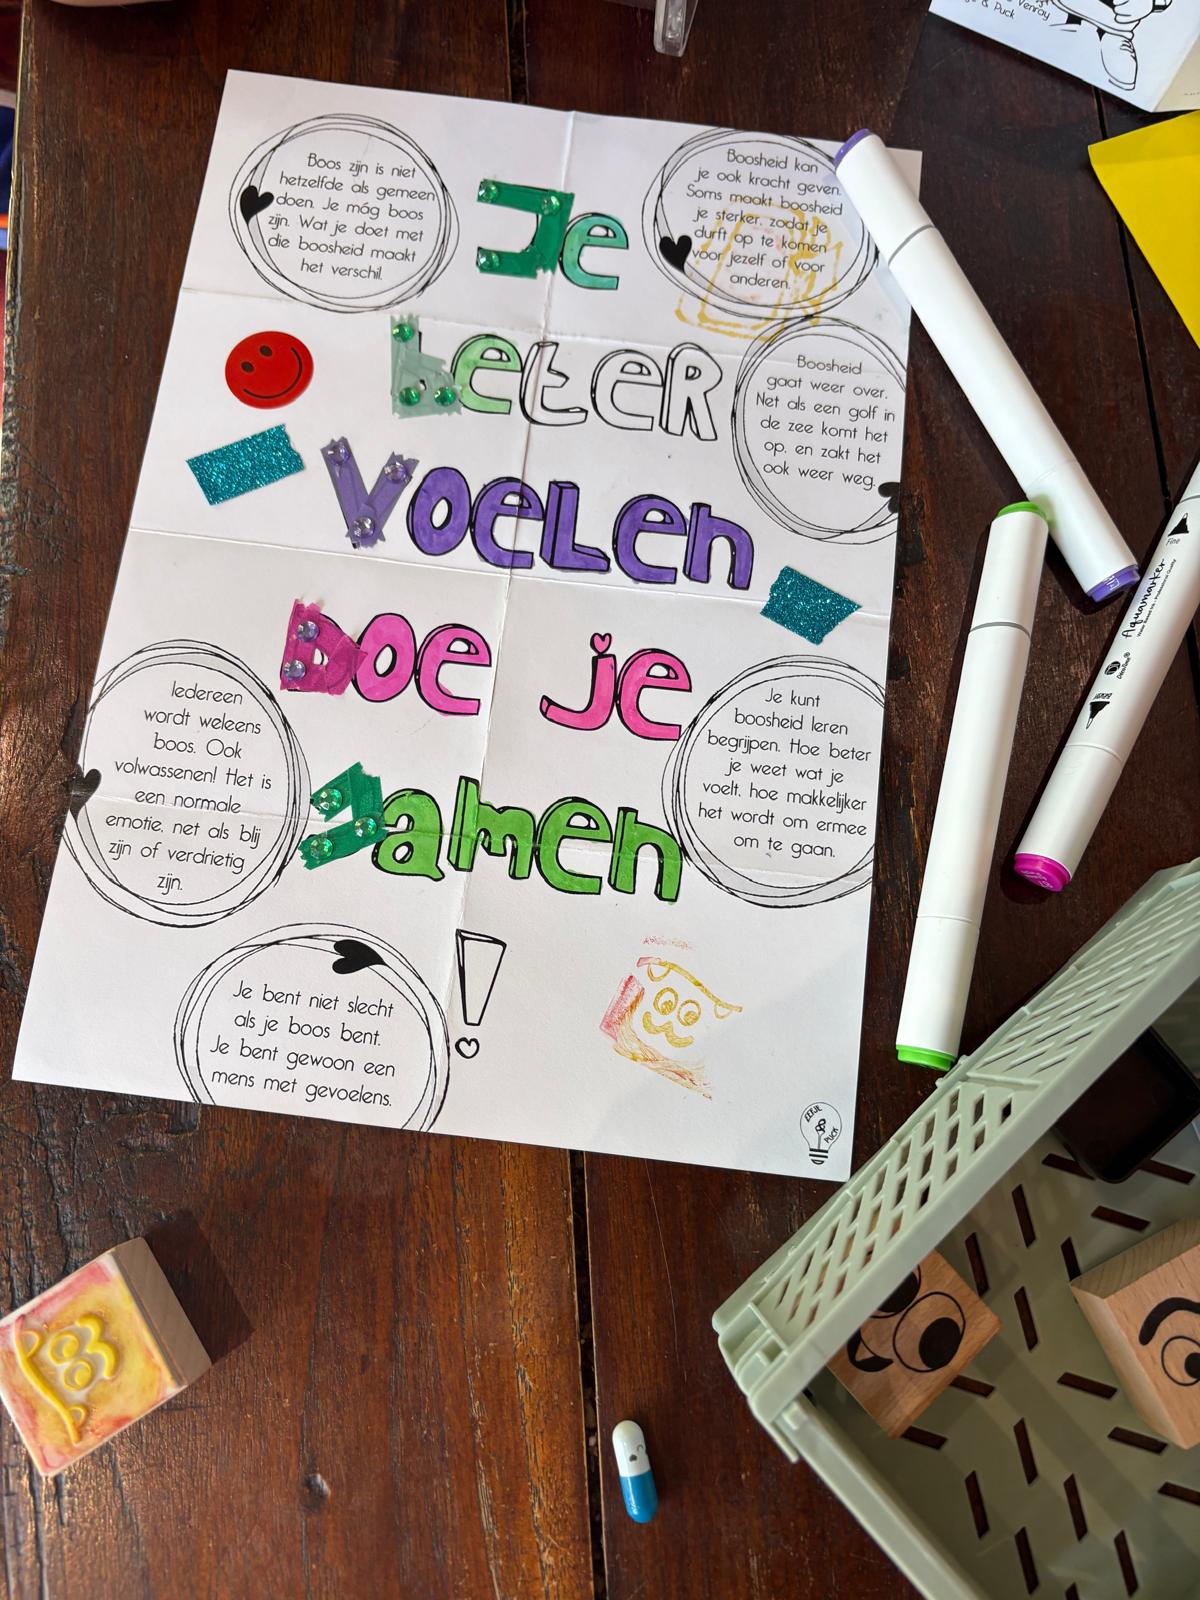 Boos zijn is niet
hetzelfde als gemeen
doen. Je móg boos
zijn. Wat je doet met
die boosheid maakt
het verschil.
Je
Boosheid kan
je ook kracht geven.
Soms maakt boosheid
je sterker, zodat je
durft op te komen
voor jezelf of voor
anderen.
beter
Boosheid
gaat weer over.
Net als een golf in
de zee komt het
op, en zakt het
ook weer weg.
voelen
doe je
Iedereen
wordt weleens
boos. Ook
volwassenen! Het is
een normale
emotie, net als blij
zijn of verdrietig
zijn.
Je kunt
boosheid leren
begrijpen. Hoe beter
je weet wat je
voelt, hoe makkelijker
het wordt om ermee
om te gaan.
samen
!
Je bent niet slecht
als je boos bent.
Je bent gewoon een
mens met gevoelens.
EEFJE
&
PUCK
Venray
& Puck
Fine
Aquamarker